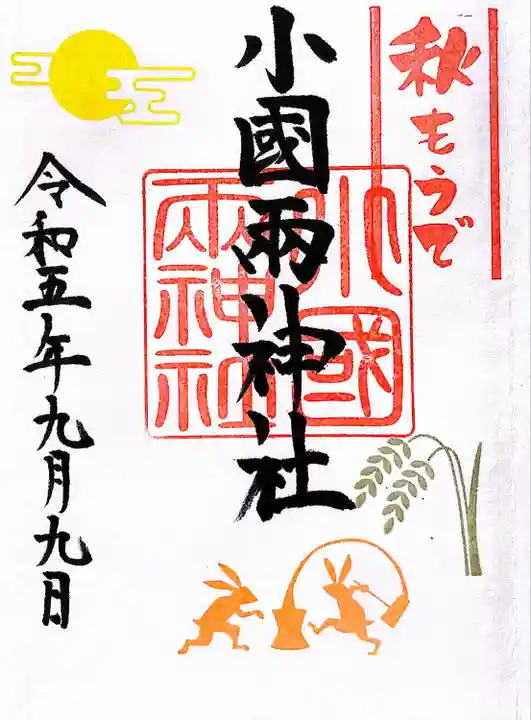 秋もうで
小國兩神社
小國
兩神社
令和五年九月九日